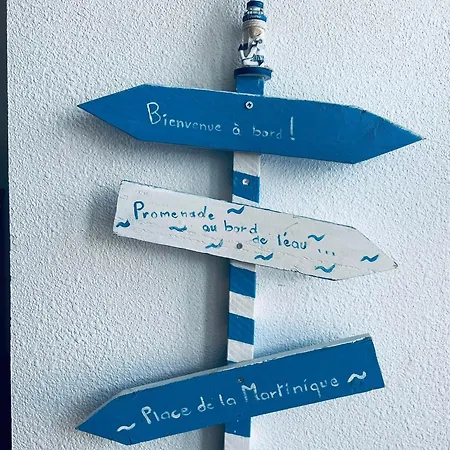 Bienvenue à bord !
Promenade
au bord
de l'eau ...
~ Place de la Martinique ~